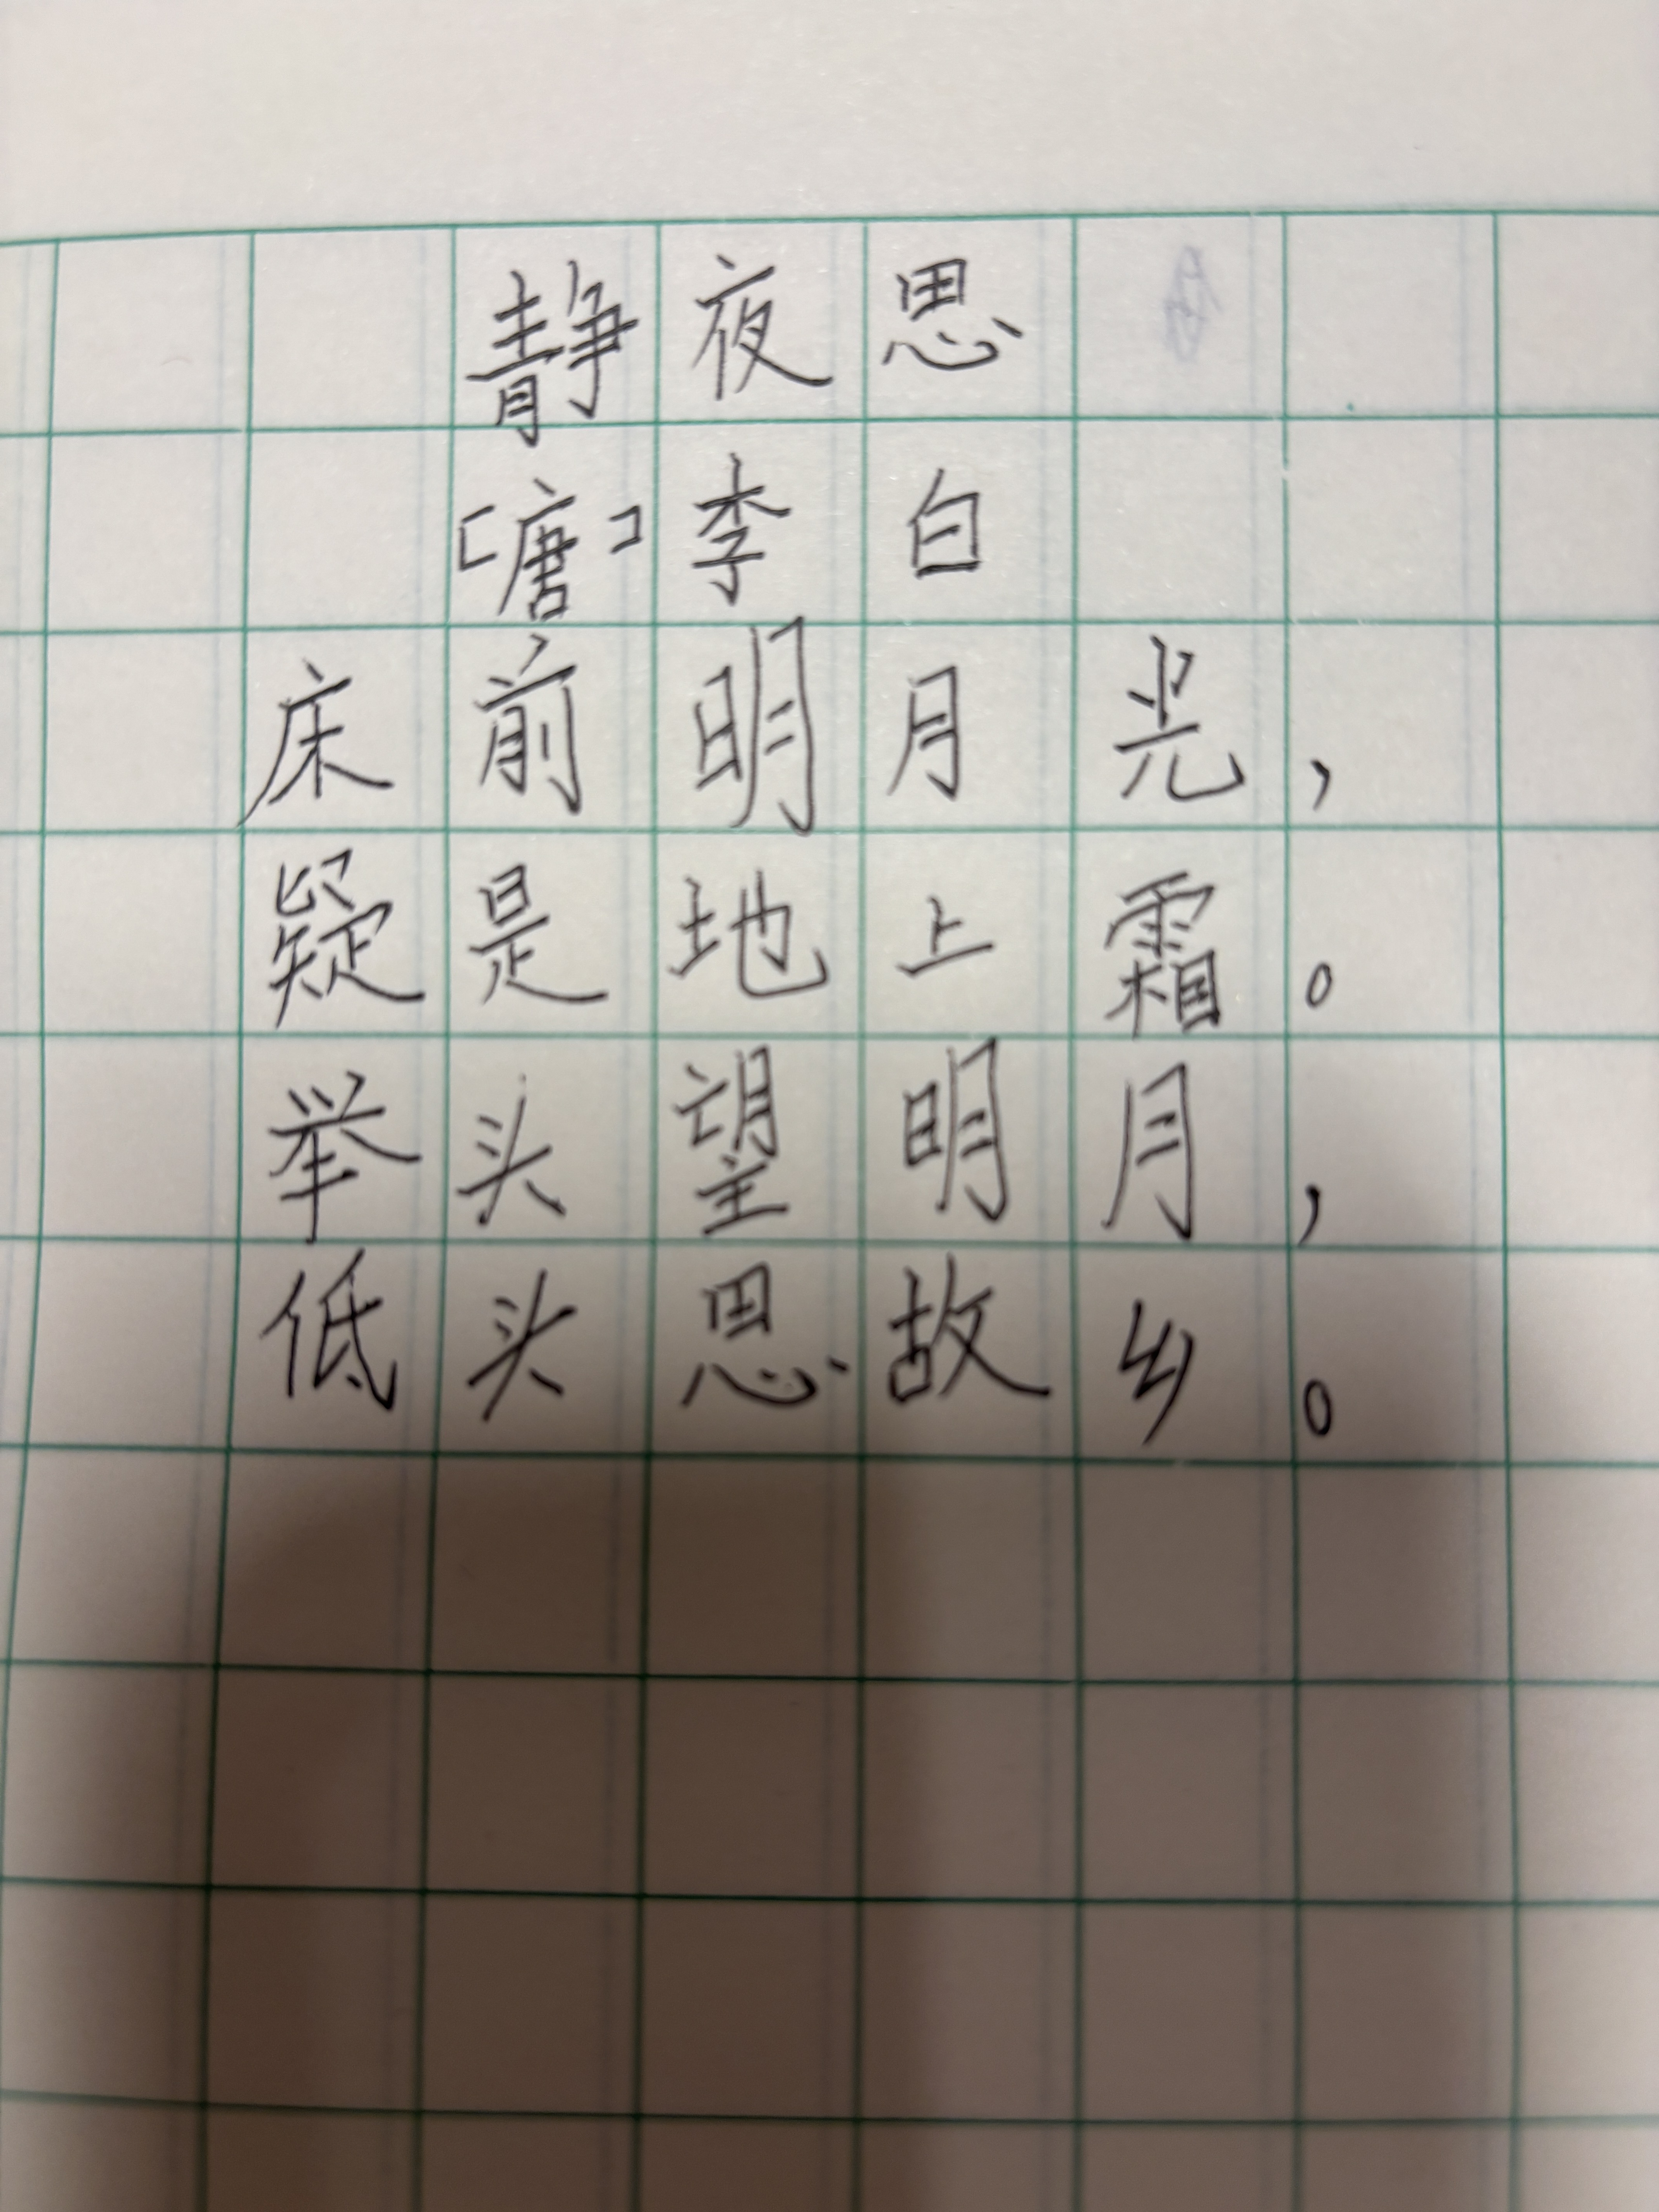 静夜思
「唐」李白
床前明月光，
疑是地上霜。
举头望明月，
低头思故乡。